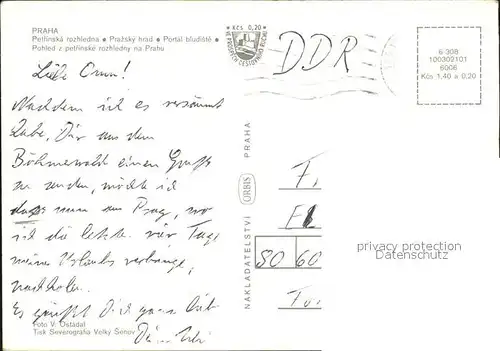 PRAHA
Petřínská rozhledna • Pražský hrad • Portál bludiště •
Pohled z petřínské rozhledny na Prahu
Kčs 0,20
DDR
6 308
100302101
6006
Kčs 1,40 + 0,20
Liebe Omm!
Nachdem ich es versäumt
habe, Dir aus dem
Böhmerwald einen Gruß
zu senden, möchte ich
das nun aus Prag, wo
ich die letzten vier Tage
meines Urlaubs verbringe,
nachholen.
Es grüßt Dich ganz lieb
Foto V. Ostádal
Tisk Severografia Velký Šenov
NAKLADATELSTVÍ ORBIS PRAHA
80 60
privacy protection
Datenschutz